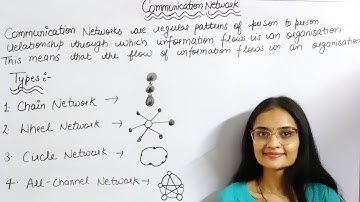 Communication Network
Communication Networks are regular patterns of person to person
relationship through which information flows in an organisation.
This means that the flow of information flows in an organisation
Types :-
1. Chain Network →
2. Wheel Network →
3. Circle Network →
4. All-Channel Network →